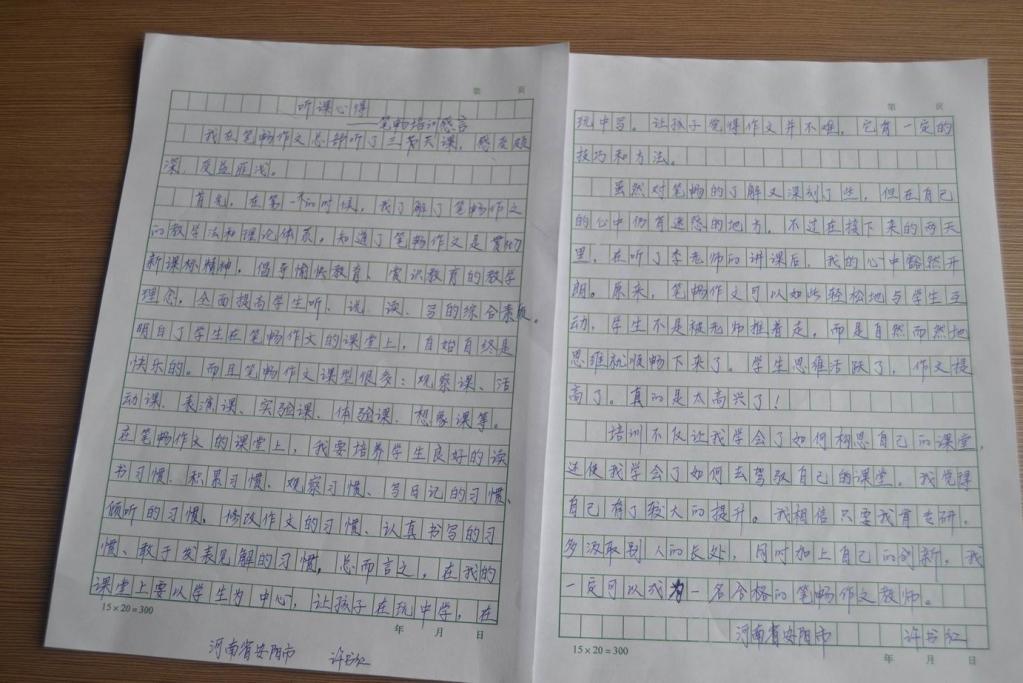 第 页
听课心得
——笔畅培训感言
我在笔畅作文总部听了三天课，感受颇
深，受益匪浅。
首先，在第一天的时候，我了解了笔畅作文
的教学法和理论体系。知道了笔畅作文是贯彻了
新课标精神，倡导愉快教育、赏识教育的教学
理念，全面提高学生听、说、读、写的综合素质。
明白了学生在笔畅作文的课堂上，自始自终是
快乐的。而且笔畅作文课型很多：观察课、活
动课、表演课、实验课、体验课、想象课等。
在笔畅作文的课堂上，我要培养学生良好的读
书习惯、积累习惯、观察习惯、写日记的习惯、
倾听的习惯、修改作文的习惯、认真书写的习
惯、敢于发表见解的习惯，总而言之，在我的
课堂上要以学生为中心，让孩子在玩中学，在
15×20=300
年 月 日
河南省安阳市 许书红
第 页
玩中写。让孩子觉得作文并不难，它有一定的
技巧和方法。
虽然对笔畅的了解又深刻了些，但在自己
的心中仍有迷惑的地方，不过在接下来的两天
里，在听了李老师的讲课后，我的心中豁然开
朗。原来，笔畅作文可以如此轻松地与学生互
动，学生不是被老师推着走，而是自然而然地
思维就顺畅下来了。学生思维活跃了，作文提
高了。真的是太高兴了！
培训不仅让我学会了如何构思自己的课堂，
还使我学会了如何去驾驭自己的课堂。我觉得
自己有了较大的提升。我相信只要我肯专研，
多汲取别人的长处，同时加上自己的创新，我
一定可以成为一名合格的笔畅作文教师。
河南省安阳市 许书红
15×20=300
年 月 日